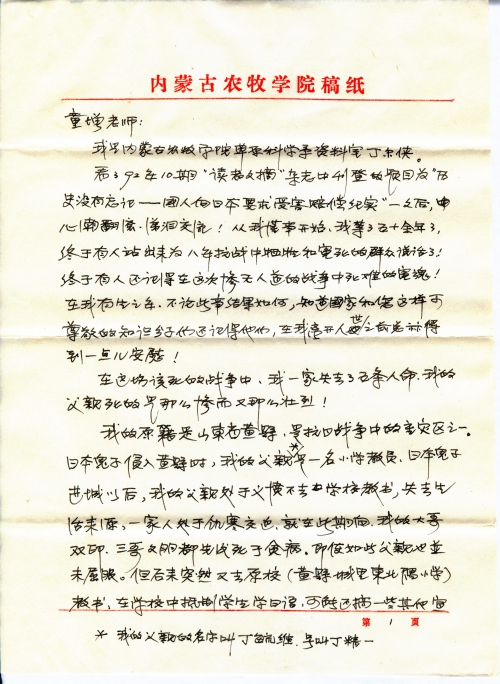 内蒙古农牧学院稿纸
童增老师：
我是内蒙古农牧学院草原科学系资料室丁
看了92年10期“读者文摘”杂志中刊登的题目为“历
史没有忘记——国人向日本要求受害赔偿纪实”一文后，
心潮翻滚、涕泪交流！从我懂事开始，我等了五十余年了，
终于有人站出来为八年抗战中牺牲和冤死的群众说话了！
终于有人还记得在这次惨无人道的战争中死难的冤魂！
在我有生之年，不论此事结果如何，知道国家和您这样可
尊敬的知识分子们还记得他们，在我离开人世之后也亦得
到一点儿安慰！
在这场该死的战争中，我一家失去了五条人命，我的
父亲死的是那么惨而又那么壮烈！
我的原籍是山东省黄县，是抗日战争中的重灾区之一。
日本鬼子侵入黄县时，我的父亲*是一名小学教员，日本鬼子
进城以后，我的父亲处于义愤不去学校教书，失去生
活来源，一家人处于饥寒交迫，就在此期间，我的大哥
双印、三哥文明都先后死于贫病。即使如此父亲也並
未屈服。但后来突然又去原校（黄县城里东北隅小学）
教书，在学校中抵制学生学日语，可能还搞一些其他宣
第 1 页
* 我的父亲的名字叫丁毓继，号叫丁精一